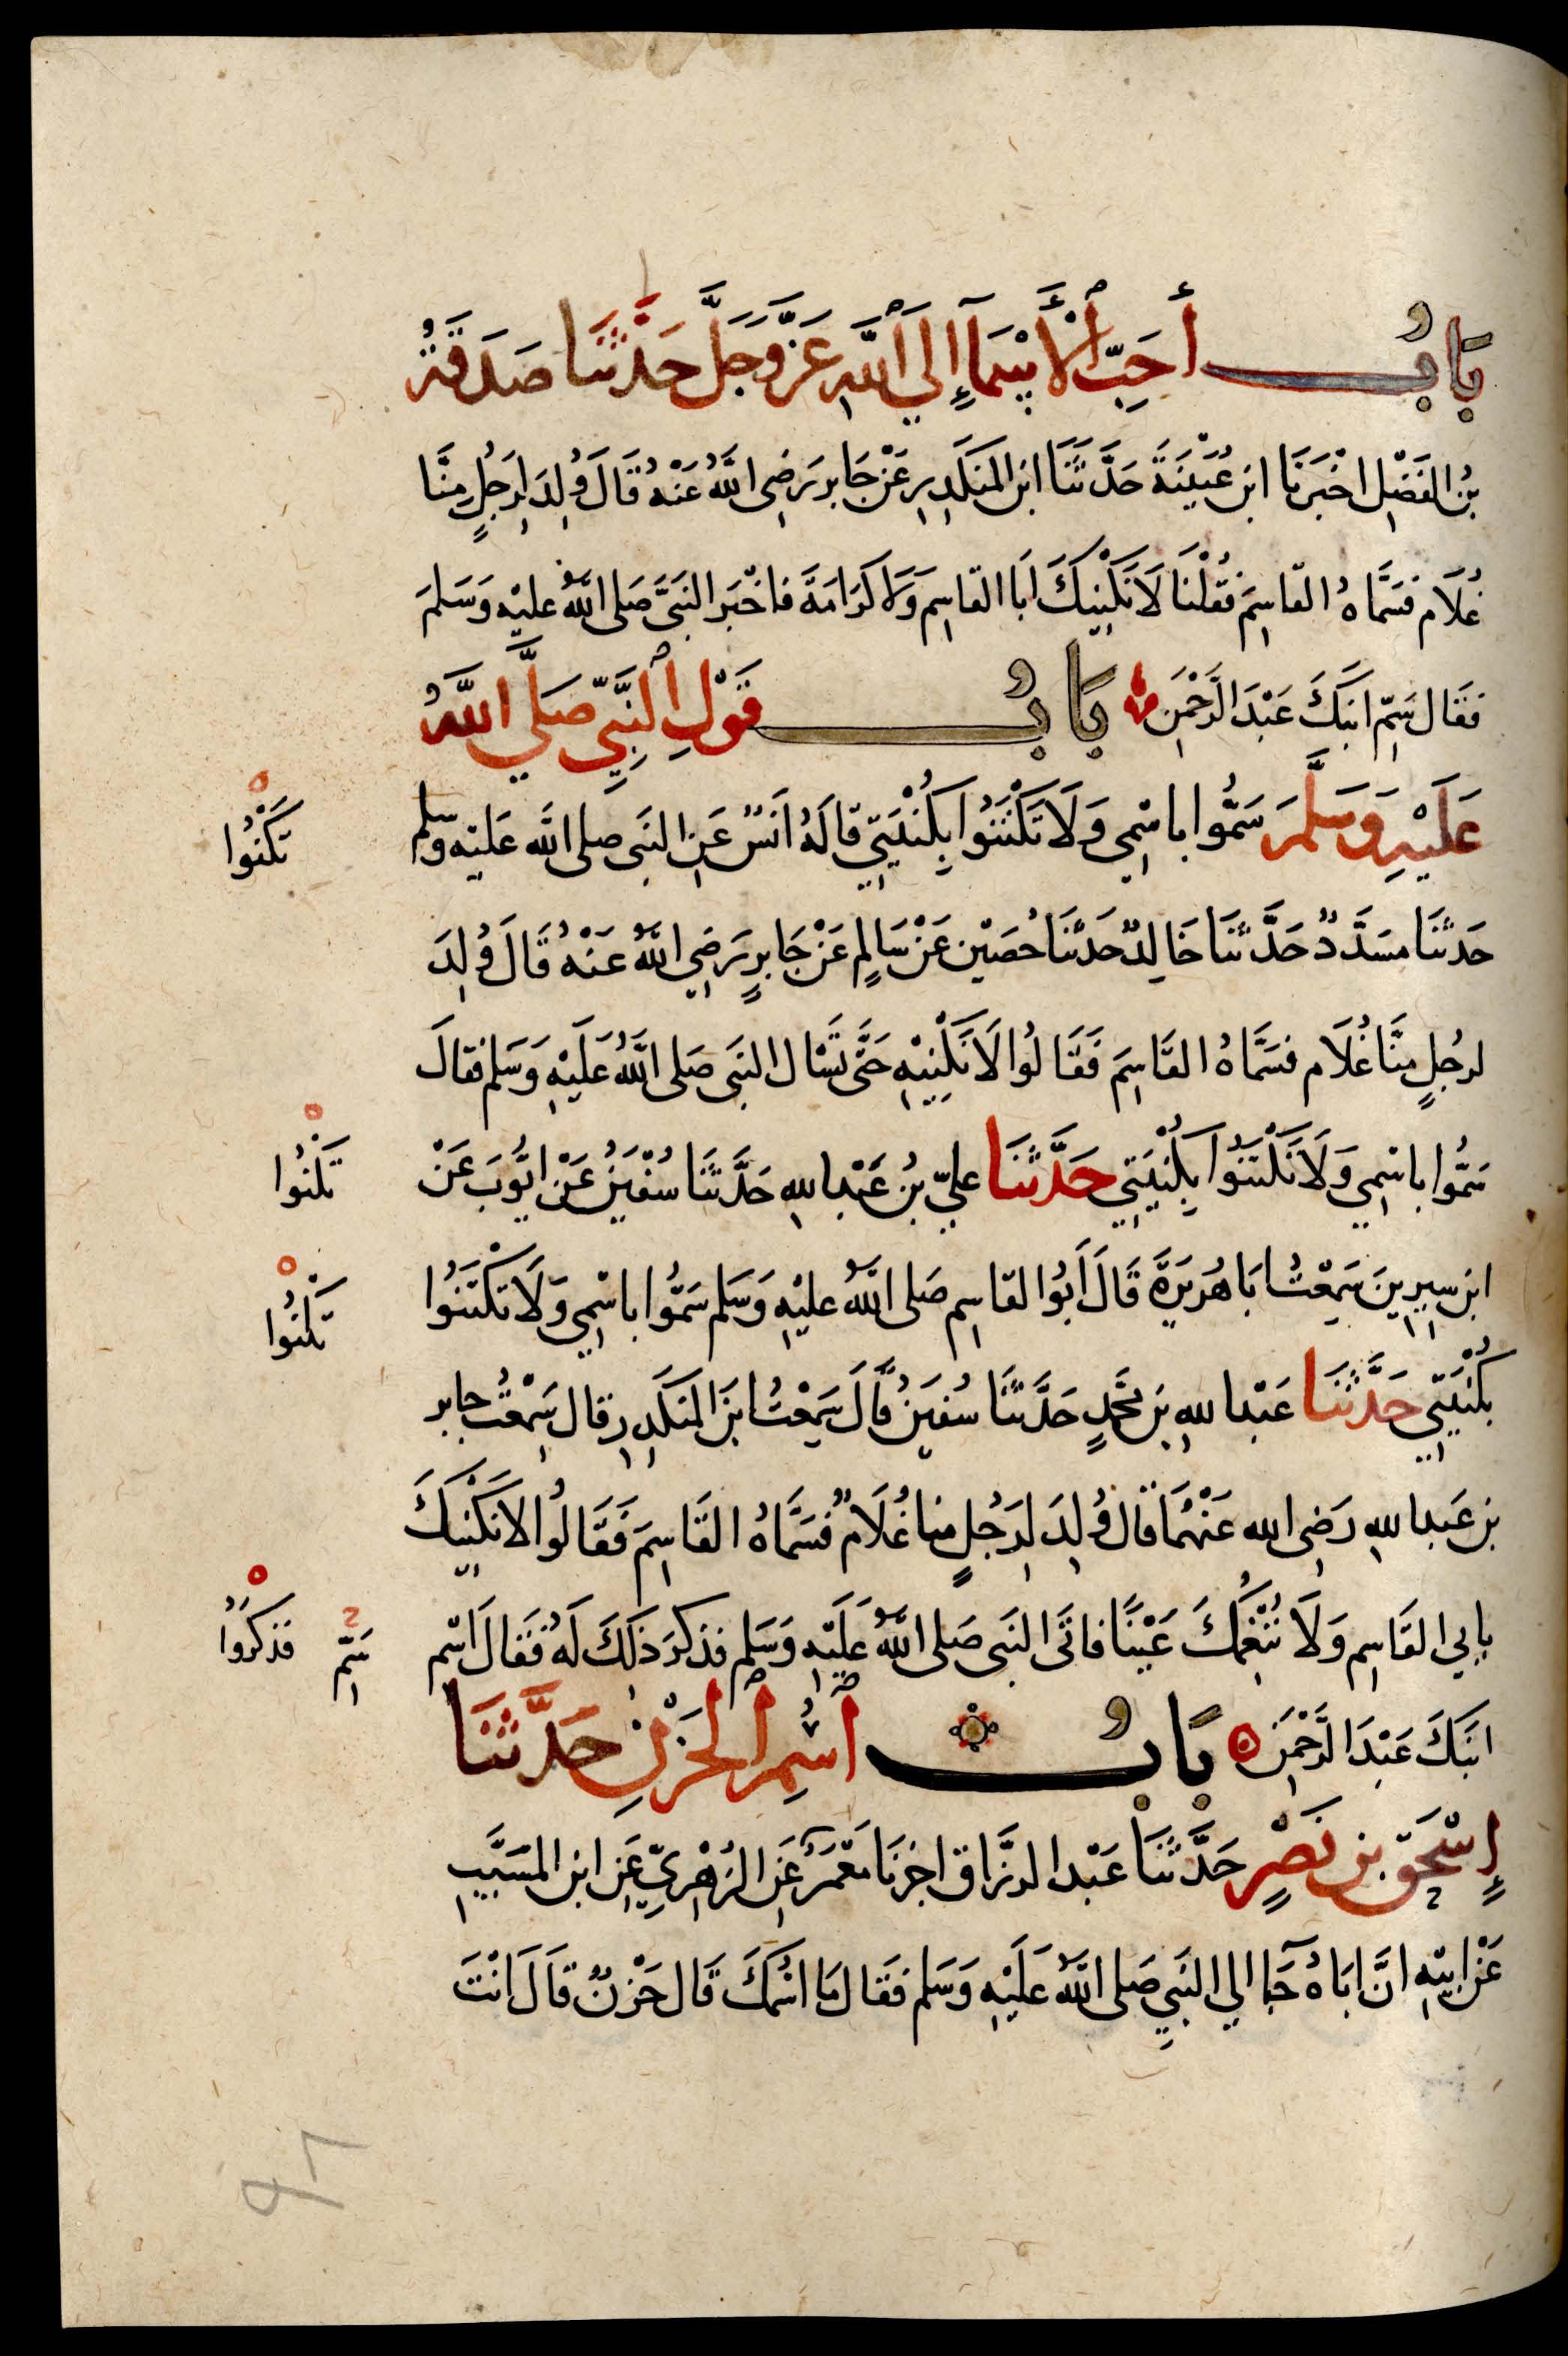 بَابُ أَحَبِّ ٱلْأَسْمَآءِ إِلَي ٱللَّهِ عَزَّ وَجَلَّ حَدَّثَنَا صَدَقَةُ
بْنُ الفَضْلِ اخْبَرَنَا ابن عُيَيْنَةَ حَدَّثَنَا ابن المنكَدِرِ عَنْ جَابر رَضِى اللَّهُ عَنْهُ قَالَ وُلِدَ لِرَجُلٍ مِنَّا
غُلَام فَسَمَّاهُ القَاسِمَ فقُلْنَا لَا نَكْنِيكَ ابَا القَاسِمِ وَلَا كَرَامَةَ فاخْبَر النبَىَّ صَلى اللَّهُ عليْهِ وَسَلمَ
فقَال سَمِّ ابنَكَ عَبْدَ الرَّحْمٰنِ بَابُ قَوْلِ ٱلنَّبِيِّ صَلَّي اللَّهُ
عَلَيْهِ وَسَلَّمَ سَمُّوا باسْمِي وَلَا تَكْتَنُوا بِكُنْيَتِي قالَهُ انَسٌ عَنِ النبَى صلى الله عَليْه وسلم
تَكْنُوا
حَدثَنَا مسَدَّدٌ حَدَّثَنَا خَالِدٌ حَدثَنَا حُصَيْن عَنْ سَالِمٍ عَنْ جَابِرٍ رَضِي اللَّهُ عَنْهُ قَالَ وُلِدَ
لرجُلٍ منَّا غُلَام فسَمَّاهُ القَاسِمَ فَقَالُوا لَا نَكْنِيْهِ حَتَّى نَسْال النبَى صَلى اللَّهُ عَلَيْهِ وَسَلم فقالَ
سَمُّوا باسْمِي وَلَا تَكْتَنُوا بِكُنْيَتِي حَدَّثَنَا عليّ بنُ عَبْد اللهِ حَدَّثَنَا سُفْيَنُ عَنْ ايُّوبَ عَنْ
تَكْنُوا
ابن سِيرِينَ سَمِعْتُ ابَا هُرَيرَةَ قَالَ أَبُوا لقاسِم صَلى اللَّهُ عليْهِ وَسَلم سَمُّوا باسْمِي وَلَا تَكْتَنُوا
تَكْنُوا
بكُنْيَتِي حَدَّثَنَا عَبْد اللهِ بن محَّمدٍ حَدَّثَنَا سُفيَنُ قَالَ سَمِعْتُ ابنَ المنكَدِرِ قال سَمِعْتُ جابر
بن عَبد اللهِ رَضِى الله عَنْهُمَا قال وُلِدَ لِرَجُلٍ منا غُلَامٌ فسَمَّاهُ القَاسِمَ فَقَالُوا لا نَكْنِيكَ
بابي القَاسِم وَلَا نُنْعِمُكَ عَيْنًا فاتَى النبَى صَلى اللَّهُ عَلَيْهِ وَسَلم فذكرَ ذَلكَ لَهُ فَقَالَ اسْم
سَمِّ فذكرُوا
ابنَكَ عَبْدَ الرَّحْمٰنِ بَابُ ٱسْمِ ٱلْحَزْنِ حَدَّثَنَا
إِسْحٰقُ بن نَصْرٍ حَدَّثَنَا عَبْد الرزَّاق اخبرنَا مَعْمَرٌ عَنِ الزُهْرِيِّ عَنِ ابن المسَيَّبِ
عَنْ ابيْهِ انَّ ابَاهُ جَآ الي النبَيِ صَلى اللَّهُ عَلَيْهِ وَسَلم فَقَال مَا اسْمُكَ قَال حَزْنٌ قَالَ انْتَ